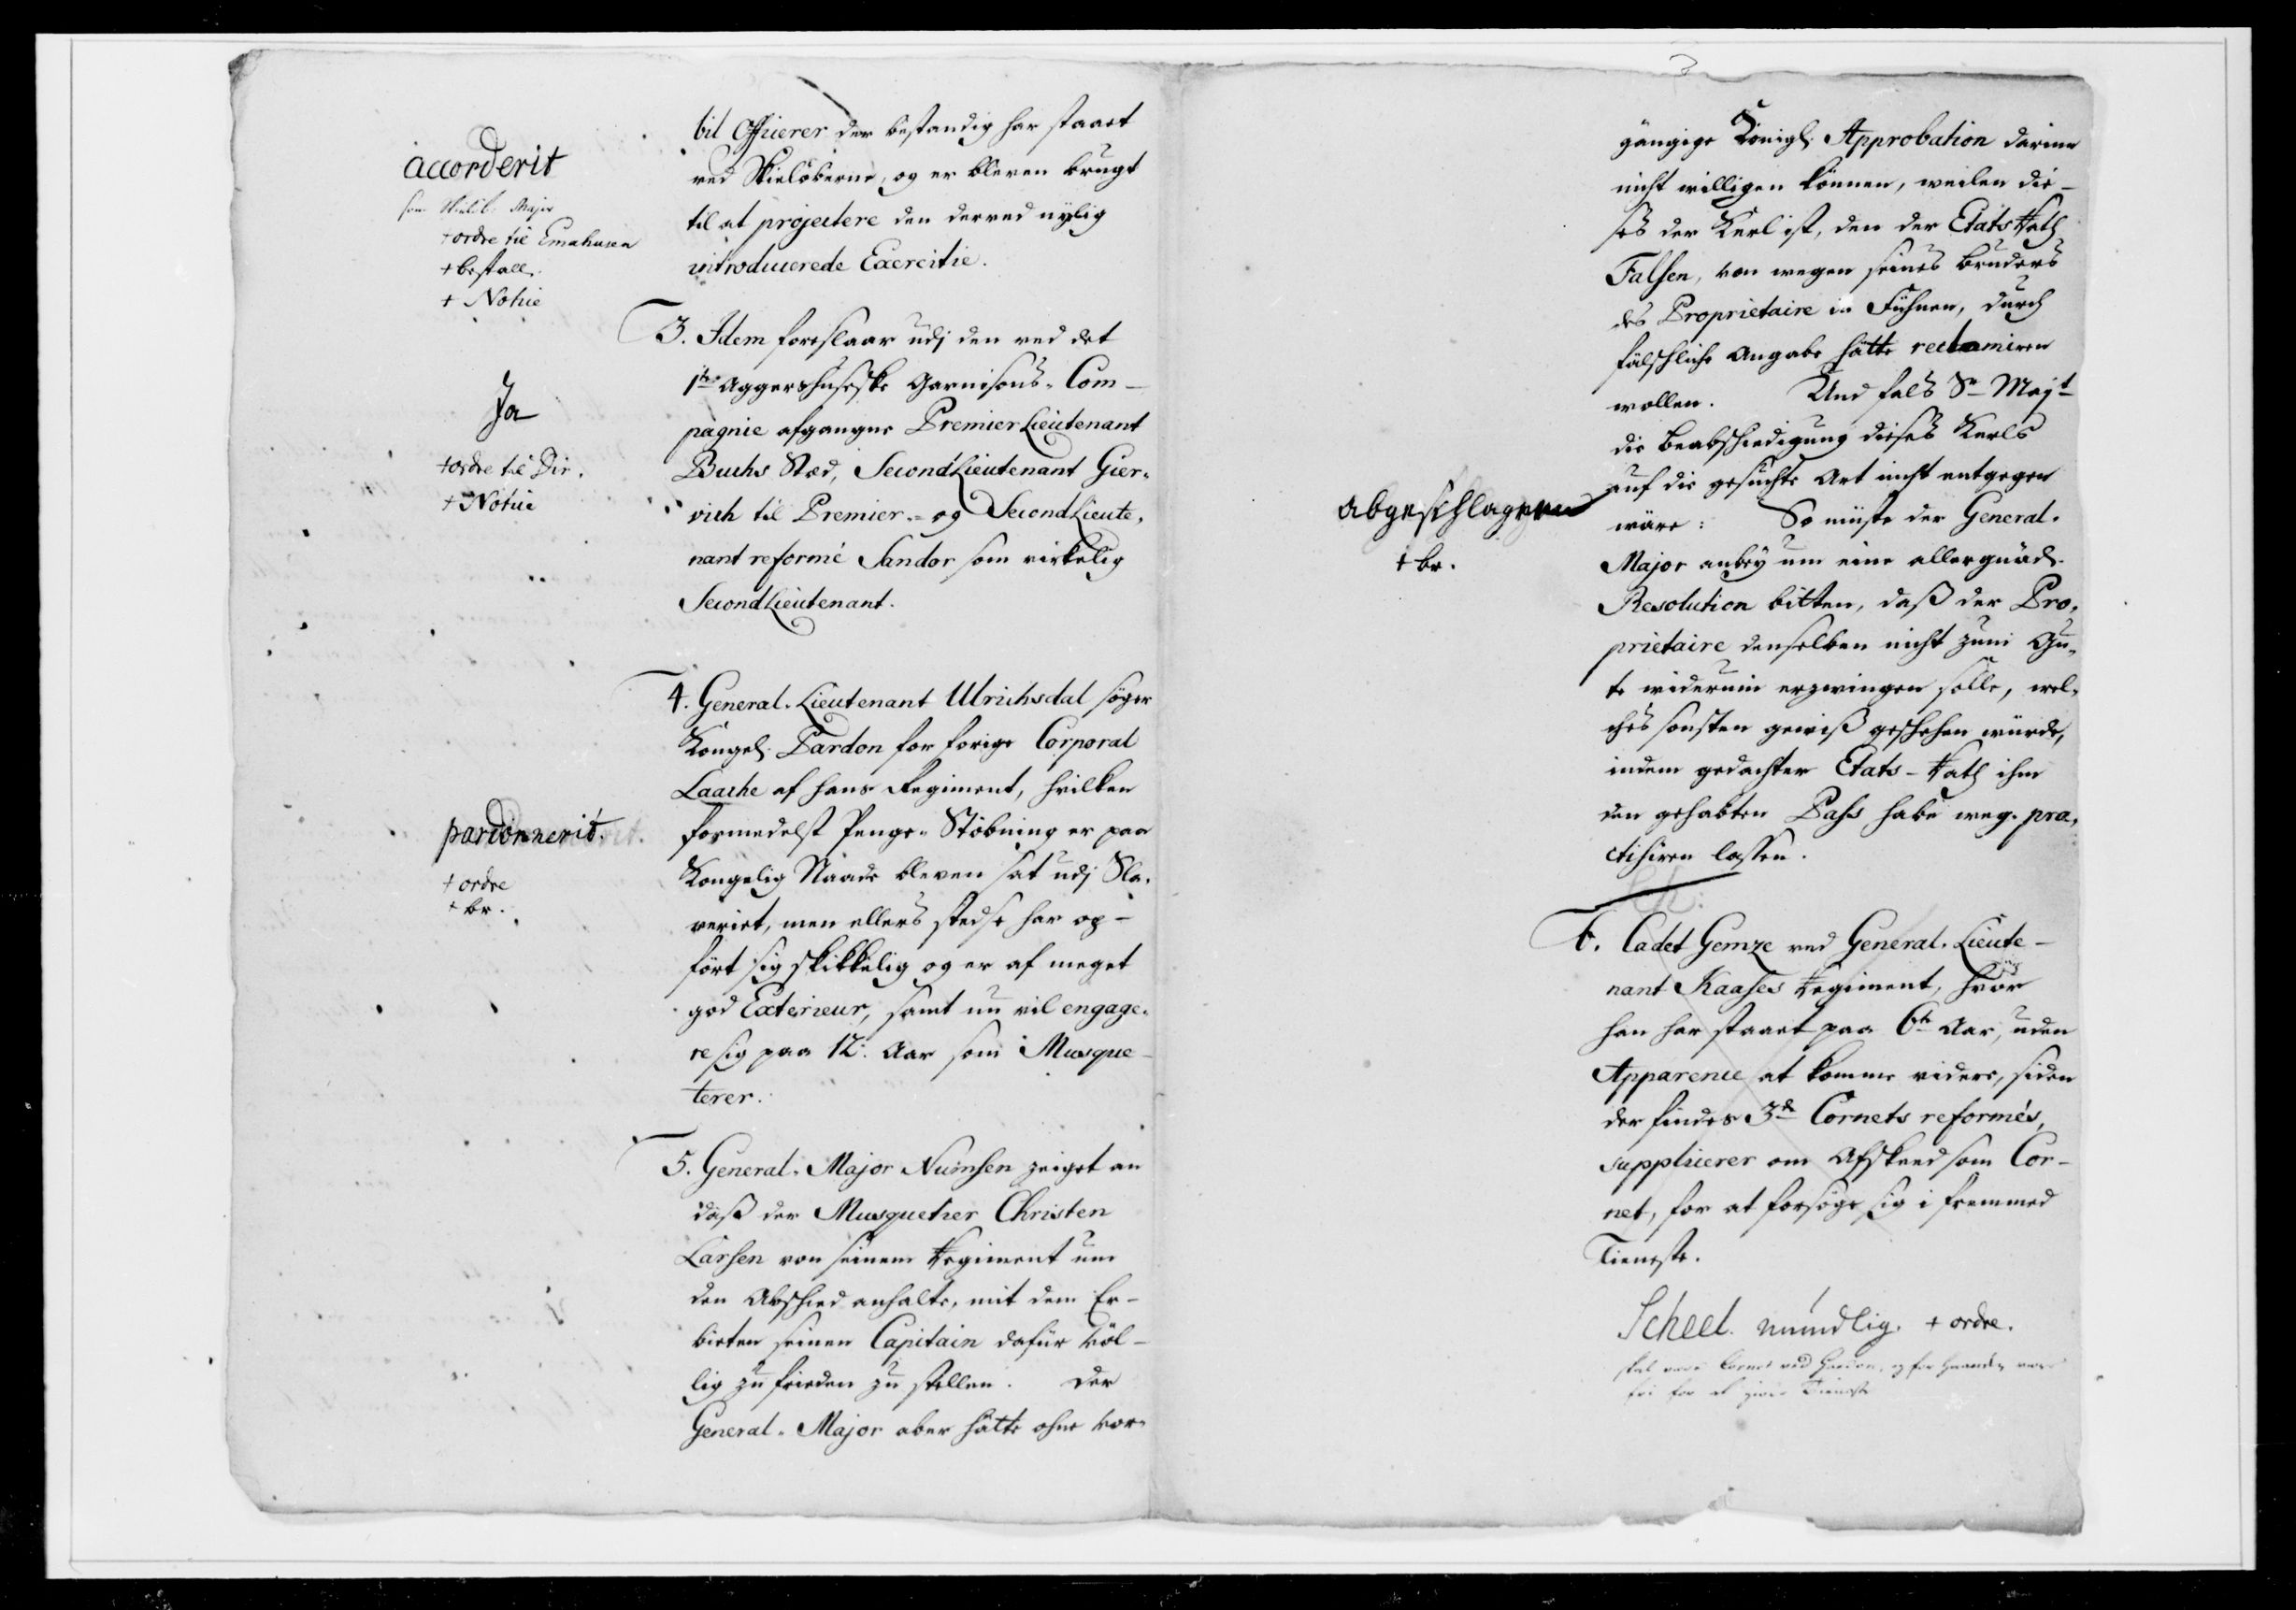 bil Officerer der bestandig har staaet
ved Skielöberne, og er bleven brugt
til at projectere den derved nÿlig
introducerede Exercitie.
accorderit
som Skielöb. Major
+ ordre til Emahusen
+ bestall.
+ Notice
3. Idem foreslaar udj den ved det
1te Aggershuusske Garnisons-Com-
pagnie afgangne Premier Lieutenant
Buchs Stæd, Second Lieutenant Gier-
vich til Premier- og Second Lieute-
nant reformé Sandor som virkelig
Second Lieutenant.
Ja
+ ordre til Dir.
+ Notice
4. General-Lieutenant Ulrichsdal söger
Kongel. Pardon for forige Corporal
Laache af hans Regiment, hvilken
formedelst Penge-Stöbning er paa
Kongelig Naade bleven sat udj Sla-
veriet, men ellers stedse har op-
fört sig skikkelig og er af meget
god Exterieur, samt nu vil engage-
re sig paa 12. Aar som Musque-
terer.
pardonnerit.
+ ordre
+ br.
5. General-Major Numsen zeiget an
daß der Musquetier Christen
Larsen von seinem Regiment um
den Abschied anhalte, mit dem Er-
bieten seinen Capitain dafür völ-
lig zu frieden zu stellen. Der
General-Major aber hätte ohne vor-
3
gängige Königl. Approbation darinn
nicht willigen können, weilen die-
ses der Kerl ist, den der Etats Rath
Falsen, von wegen seines Bruders
des Proprietaire in Fühnen, durch
fälschliche Angabe hätte reclamiren
wollen. Und fals Sr Majt
die Beabschiedigung dieses Kerls
auf die gesuchte Art nicht entgegen
wäre: So müste der General-
Major anbey um eine allergnäd.
Resolution bitten, daß der Pro-
prietaire denselben nicht zum Gu-
te widerum erzwingen solle, wel-
ches sonsten gewiß geschehen würde,
indem gedachter Etats-Rath ihm
den gehabten Pass habe weg-pra-
cticiren lassen.
abgeschlagen
+ br.
6. Cadet Gemze ved General-Lieute-
nant Kaases Regiment, hvor
han har staaet paa 6te Aar, uden
Apparence at komme videre, siden
der findes 3de Cornets reformés,
supplicerer om Afskeed som Cor-
net, for at forsöge sig i fremmed
Tieneste.
Scheel mundlig. + ordre.
skal være Cornet ved
fri for at giöre Tieneste